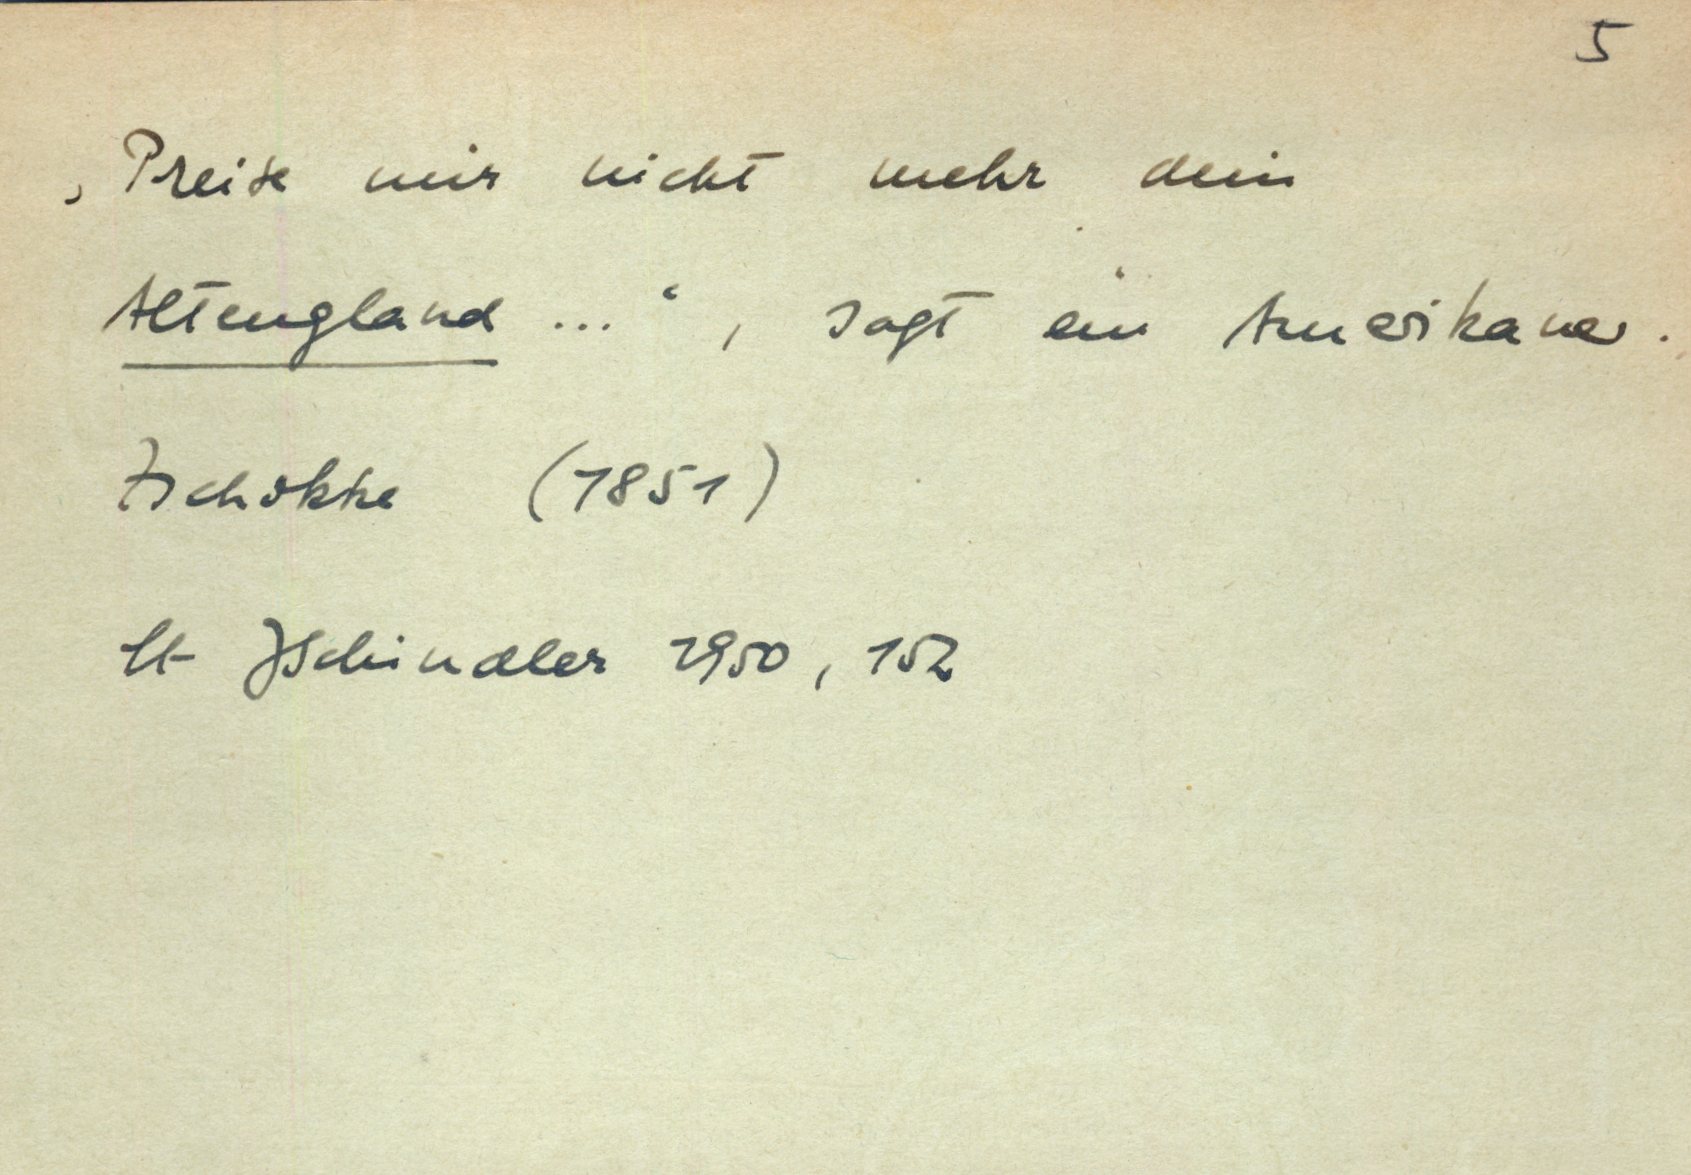 5
‚Preise mir nicht mehr dein
Altengland ...‘, sagt ein Amerikaner.
Zschokke (1851)
lt Schindler 1950, 152